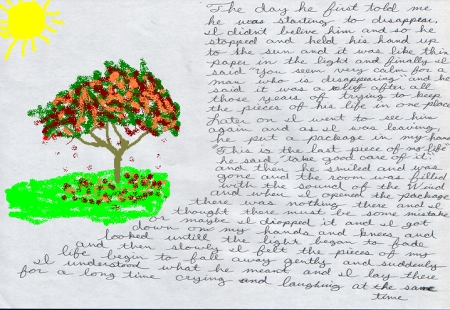 The day he first told me
he was starting to disappear,
I didn't belive him and so he
stopped and held his hand up
to the sun and it was like thin
paper in the light and finally I
said "You seem very calm for a
man who is disappearing" and he
said it was a relief after all
those years of trying to keep
the pieces of his life in one place
Later on I went to see him
again and as I was leaving
he put a package in my hand
"This is the last piece of my life"
he said, "take good care of it"
and then he smiled and was
gone and the room was filled
with the sound of the wind
and when I opened the package
there was nothing there and I
thought there must be some mistake
or maybe I dropped it and I got
down one my hands and knees and
looked untill the light began to fade
and then slowly I felt the pieces of my
life begin to fall away gently and suddenly
I understood what he meant and I lay there
for a long time crying and laughing at the same
time